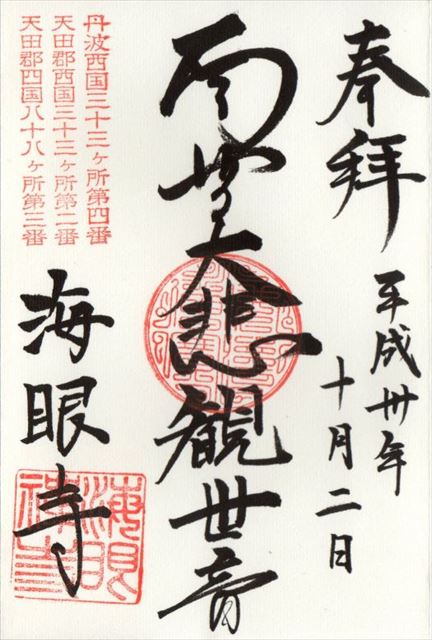 奉拝
平成卅年
十月二日
南無大悲観世音
丹波西国三十三ヶ所第四番
天田郡西国三十三ヶ所第二番
天田郡四国八十八ヶ所第三番
海眼寺
海眼
禅寺